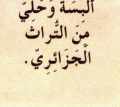 أَلْبِسَةٌ وَحُلِيٌّ
مِنَ التُّرَاثِ
الْجَزَائِرِيِّ.